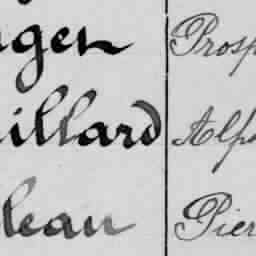 agen Prosp
aillard Alph
leau Pier